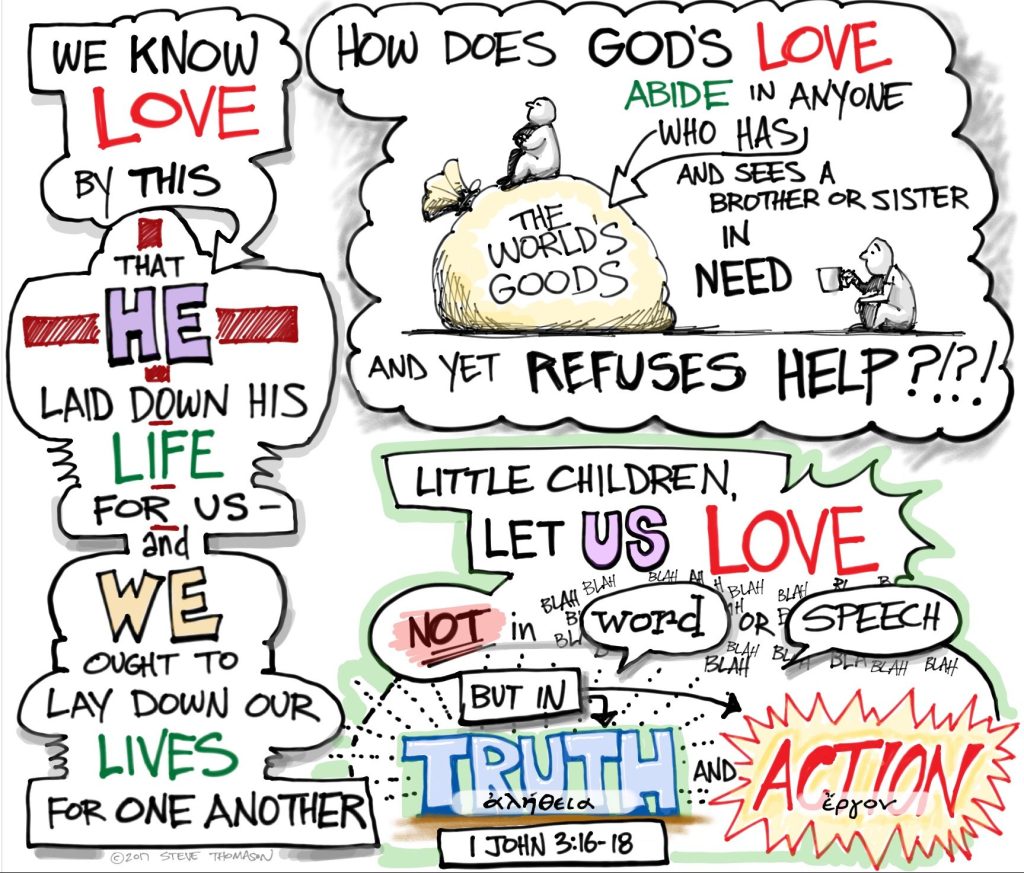 WE KNOW
LOVE
BY THIS
THAT
HE
LAID DOWN HIS
LIFE
FOR US -
and
WE
OUGHT TO
LAY DOWN OUR
LIVES
FOR ONE ANOTHER
©2017 STEVE THOMASON
HOW DOES GOD'S LOVE
ABIDE IN ANYONE
WHO HAS
AND SEES A
BROTHER OR SISTER
IN
NEED
THE
WORLD'S
GOODS
AND YET REFUSES HELP?!?!...
LITTLE CHILDREN,
LET US LOVE
BLAH BLAH BLAH BLAH BLAH
BLAH
NOT in word OR SPEECH
BLAH BLAH BLAH BLAH BLAH
BUT IN
TRUTH AND ACTION
ἀλήθεια ἔργον
1 JOHN 3:16-18